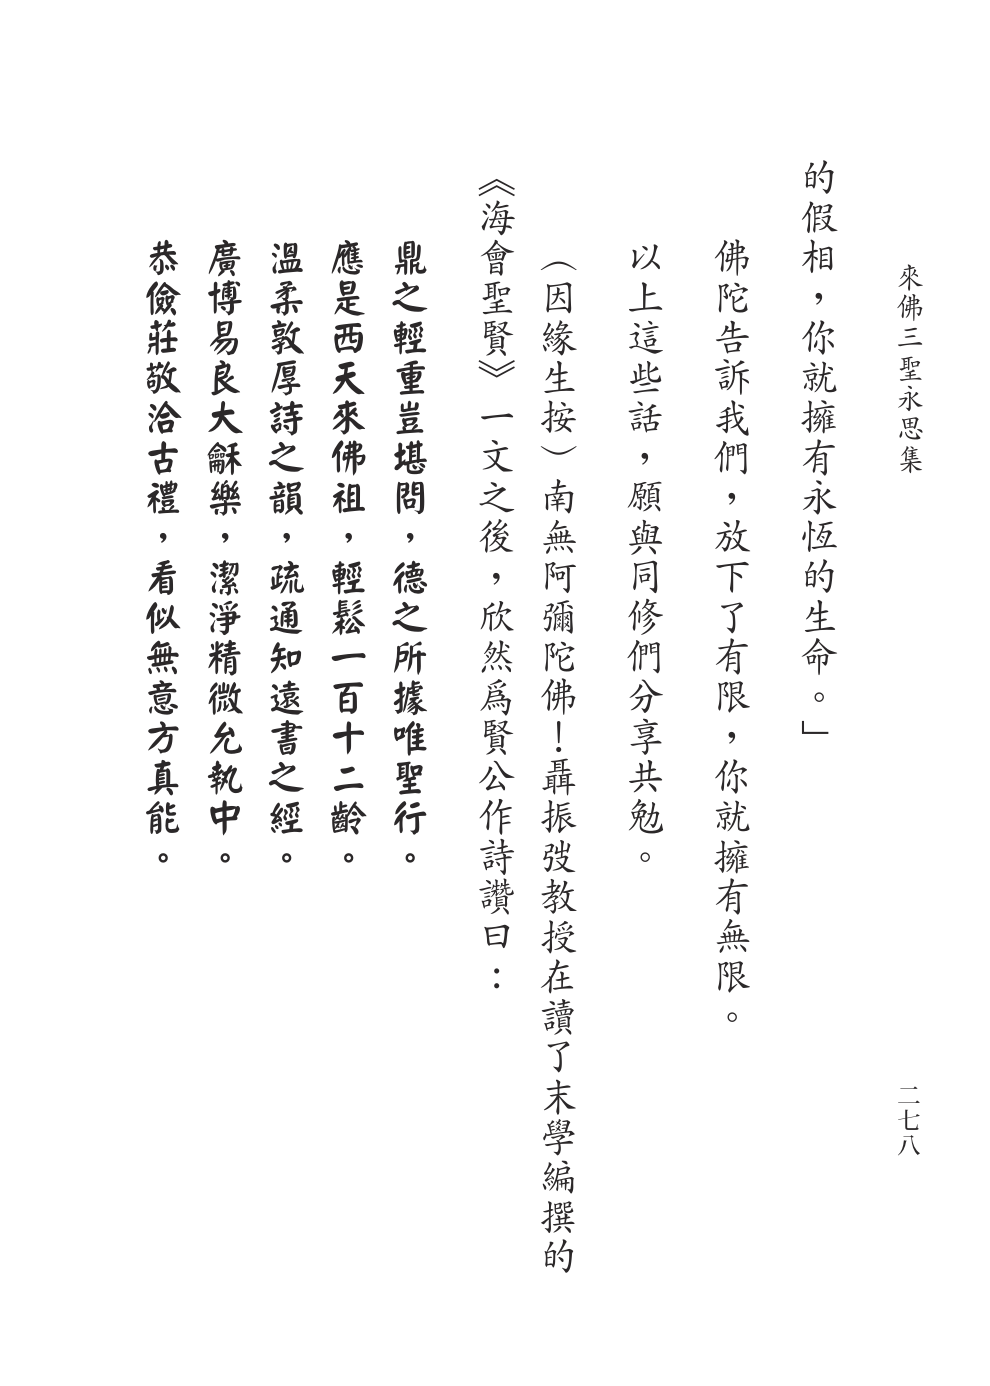 來佛三聖永思集
二七八
的假相，你就擁有永恆的生命。」
佛陀告訴我們，放下了有限，你就擁有無限。
以上這些話，願與同修們分享共勉。
（因緣生按）南無阿彌陀佛！聶振弢教授在讀了末學編撰的
《海會聖賢》一文之後，欣然爲賢公作詩讚曰：
鼎之輕重豈堪問，德之所據唯聖行。
應是西天來佛祖，輕鬆一百十二齡。
溫柔敦厚詩之韻，疏通知遠書之經。
廣博易良大龢樂，潔淨精微允執中。
恭儉莊敬洽古禮，看似無意方真能。